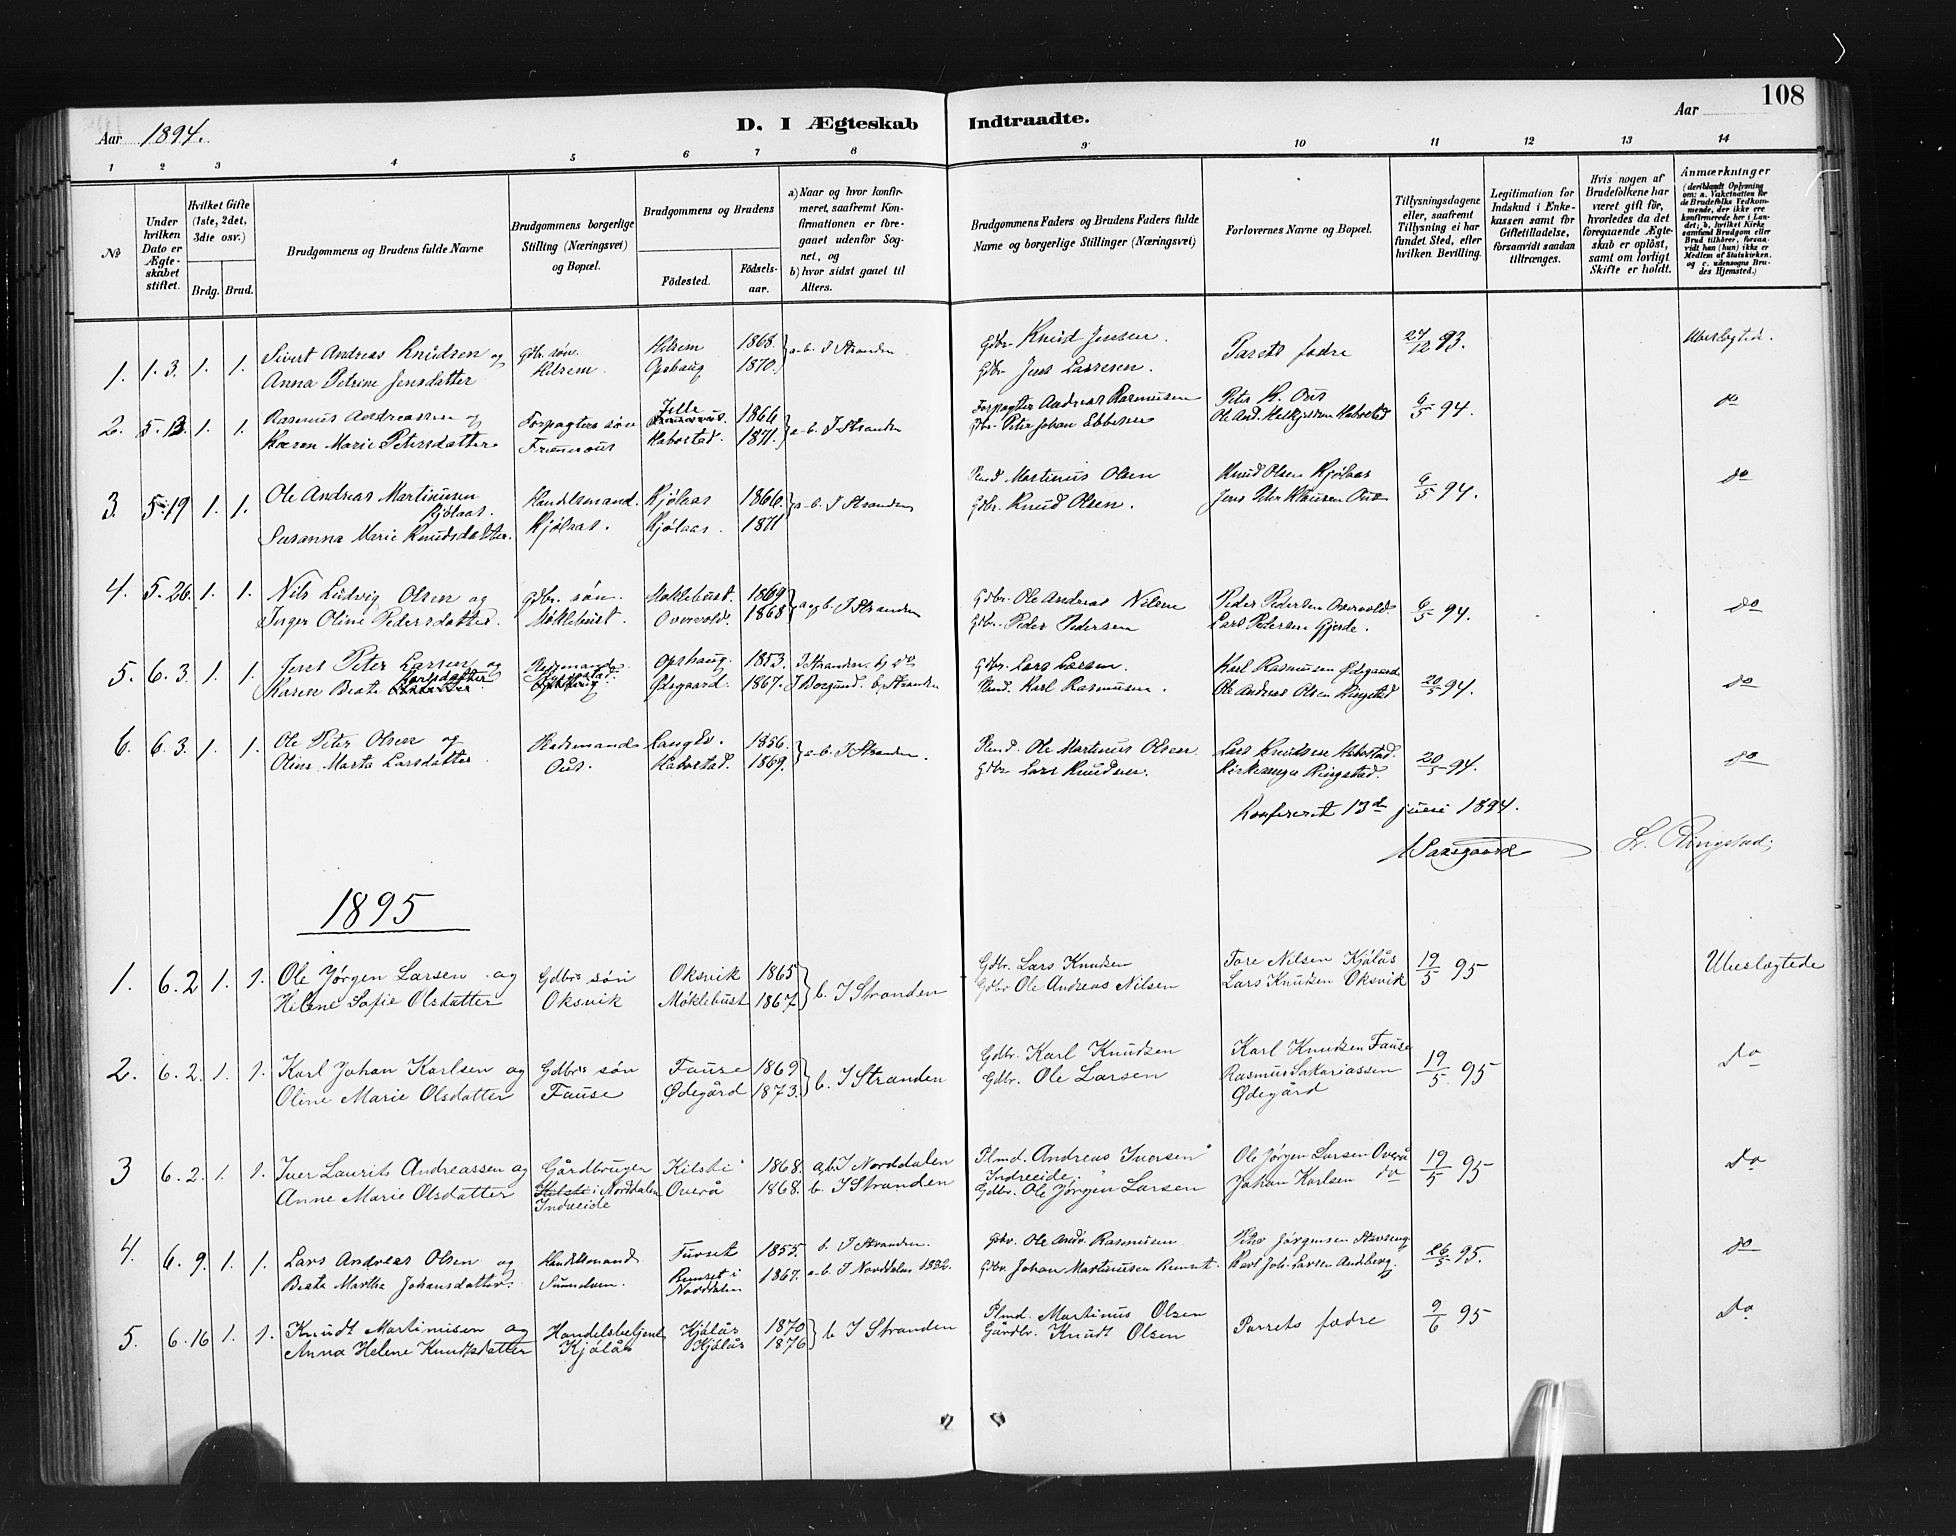 108
Aar 1894.
D. I Ægteskab Indtraadte.
Aar
1 2 3 4 5 6 7 8 9 10 11 12 13 14
No
Under hvilken Dato er Ægteskabet stiftet.
Hvilket Gifte (1ste, 2det, 3die osv.)
Brdg. Brud.
Brudgommens og Brudens fulde Navne
Brudgommens borgerlige Stilling (Næringsvei) og Bopæl.
Brudgommens og Brudens
Födested. Födselsaar.
a) Naar og hvor konfirmeret, saafremt Konfirmationen er foregaaet udenfor Sognet, og
b) hvor sidst gaaet til Alters.
Brudgommens Faders og Brudens Faders fulde Navne og borgerlige Stillinger (Næringsvei)
Forlovernes Navne og Bopæl.
Tillysningsdagene eller, saafremt Tillysning ei har fundet Sted, efter hvilken Bevilling.
Legitimation for Indskud i Enkekassen samt for Giftetilladelse, forsaavidt saadan tiltrænges.
Hvis nogen af Brudefolkene har været gift för, hvorledes da det foregaaende Ægteskab er oplöst, samt om lovligt Skifte er holdt.
Anmærkninger
(deriblandt Oplysning om: a. Vakcination for de Brudefolks Vedkommende, der ikke ere konfirmerede her i Landet; b. hvilket Kirkesamfund Brudgom eller Brud tilhörer, forsaavidt han (hun) ikke er Medlem af Statskirken, og c. udensogns Brudes Hjemsted.)
1. 1.3. 1. 1. Sivert Andreas Knudsen og Gdbr. søn Helsem 1868. a-b. I Stranden Gdbr. Knud Jensen. Parets fædre 27/12 93. Ubeslægtede.
Anna Petrine Jensdatter Helsem. Opshaug 1870. Gdbr Jens Larsen.
2. 5.13. 1. 1. Rasmus Andreassen og Forpagters søn Jelle 1866 a-b. I Stranden Forpagter Andreas Rasmusen Peter Ous 6/5 94. do
Karen Marie Petersdatter Habostad. 1871. Gdbr. Peter Johan Ebbesen Ole And. Habostad
3. 5.19 1. 1. Ole Andreas Martinusen Handelsmand. Kjølaas 1866. a-b. I Stranden Plmd. Martinus Olsen Knud Olsen Kjølaas 6/5 94. do
Kjølaas.
Susanna Marie Knudsdatter. Kjølaas. Kjølaas. 1871 Gdbr. Knud Olsen. Jens Peter Klausen Ous
4. 5.26. 1. 1. Nils Ludvig Olsen og Gdbr. søn. Møklebust. 1869 a og b. I Stranden Gdbr. Ole Andreas Nilsen Peder Pedersen Overvold. 6/5 94. do
Inger Oline Pedersdatter Møklebust. Overvold. 1868 Gdbr. Peder Pedersen Lars Pedersen Gjerde.
5. 6.3. 1. 1. Jens Peter Larsen og Opshaug. 1853. I Stranden b, do Gdbr. Lars Larsen. Karl Rasmusen Ødegaard 20/5 94. do
Karen Beate Karlsdatter Ødegaard. 1867. I Borgund. b, Stranden Plmd. Karl Rasmusen. Ole Andreas Olsen Ringstad
6. 6.3. 1. 1. Ole Peter Olsen og Langlo. 1856. a-b. I Stranden. Plmd. Ole Martinus Olsen Lars Knudsen Habostad. 20/5 94. do
Oline Marta Larsdatter Ous. Habostad. 1869. Gdbr. Lars Knudsen. Kirkesanger Ringstad.
Konfereret 13de juni 1894.
L. Ringstad
1895
1. 6.2 1. 1. Ole Jørgen Larsen og Gdbrs søn Oksvik 1865 b. I Stranden Gdbr. Lars Knudsen Tore Nilsen Kjølås 19/5 95 Ubeslægtede
Helene Sofie Olsdatter Oksvik Møklebust 1867 Gdbr Ole Andreas Nilsen Lars Knudsen Oksvik
2. 6.2. 1. 1. Karl Johan Karlsen og Gdbrs søn Fause 1869 b. I Stranden Gdbr. Karl Knudsen Karl Knudsen Fause 19/5 95 do
Oline Marie Olsdatter Fause Ødegård 1873. Gdbr. Ole Larsen Rasmus Sakariassen
Ødegård
3 6.2. 1. 1. Iver Laurits Andreassen og Gårdbruger Kilsti 1868. a, b. I Norddalen Plmd. Andreas Iversen Ole Jørgen Larsen Overå 19/5 95 do
Anne Marie Olsdatter Kilsti i Norddalen Overå 1868. b. I Stranden Indreeide.
Indreeide Gdbr. Ole Jørgen Larsen Johan Karlsen do
4. 6.9. 1. 1. Lars Andreas Olsen og Handelsmand Furset 1855. b. I Stranden. Gdbr. Ole Andr. Rasmusen Peter Jørgensen 26/5 95. do
Beate Martha Johansdatter. Remset i Norddalen 1867. a-b. I Norddalen 1882. Gdbr. Johan Martinusen Remset. Karl Joh. Larsen
5. 6.16 1. 1. Knudt Martinusen og Handelsbetjent Kjølås 1870 b. I Stranden Plmd. Martinus Olsen Parrets fædre 9/6 95 do
Anna Helene Knudtsdatter Kjølås Kjølås 1876 Gårdbr. Knudt Olsen